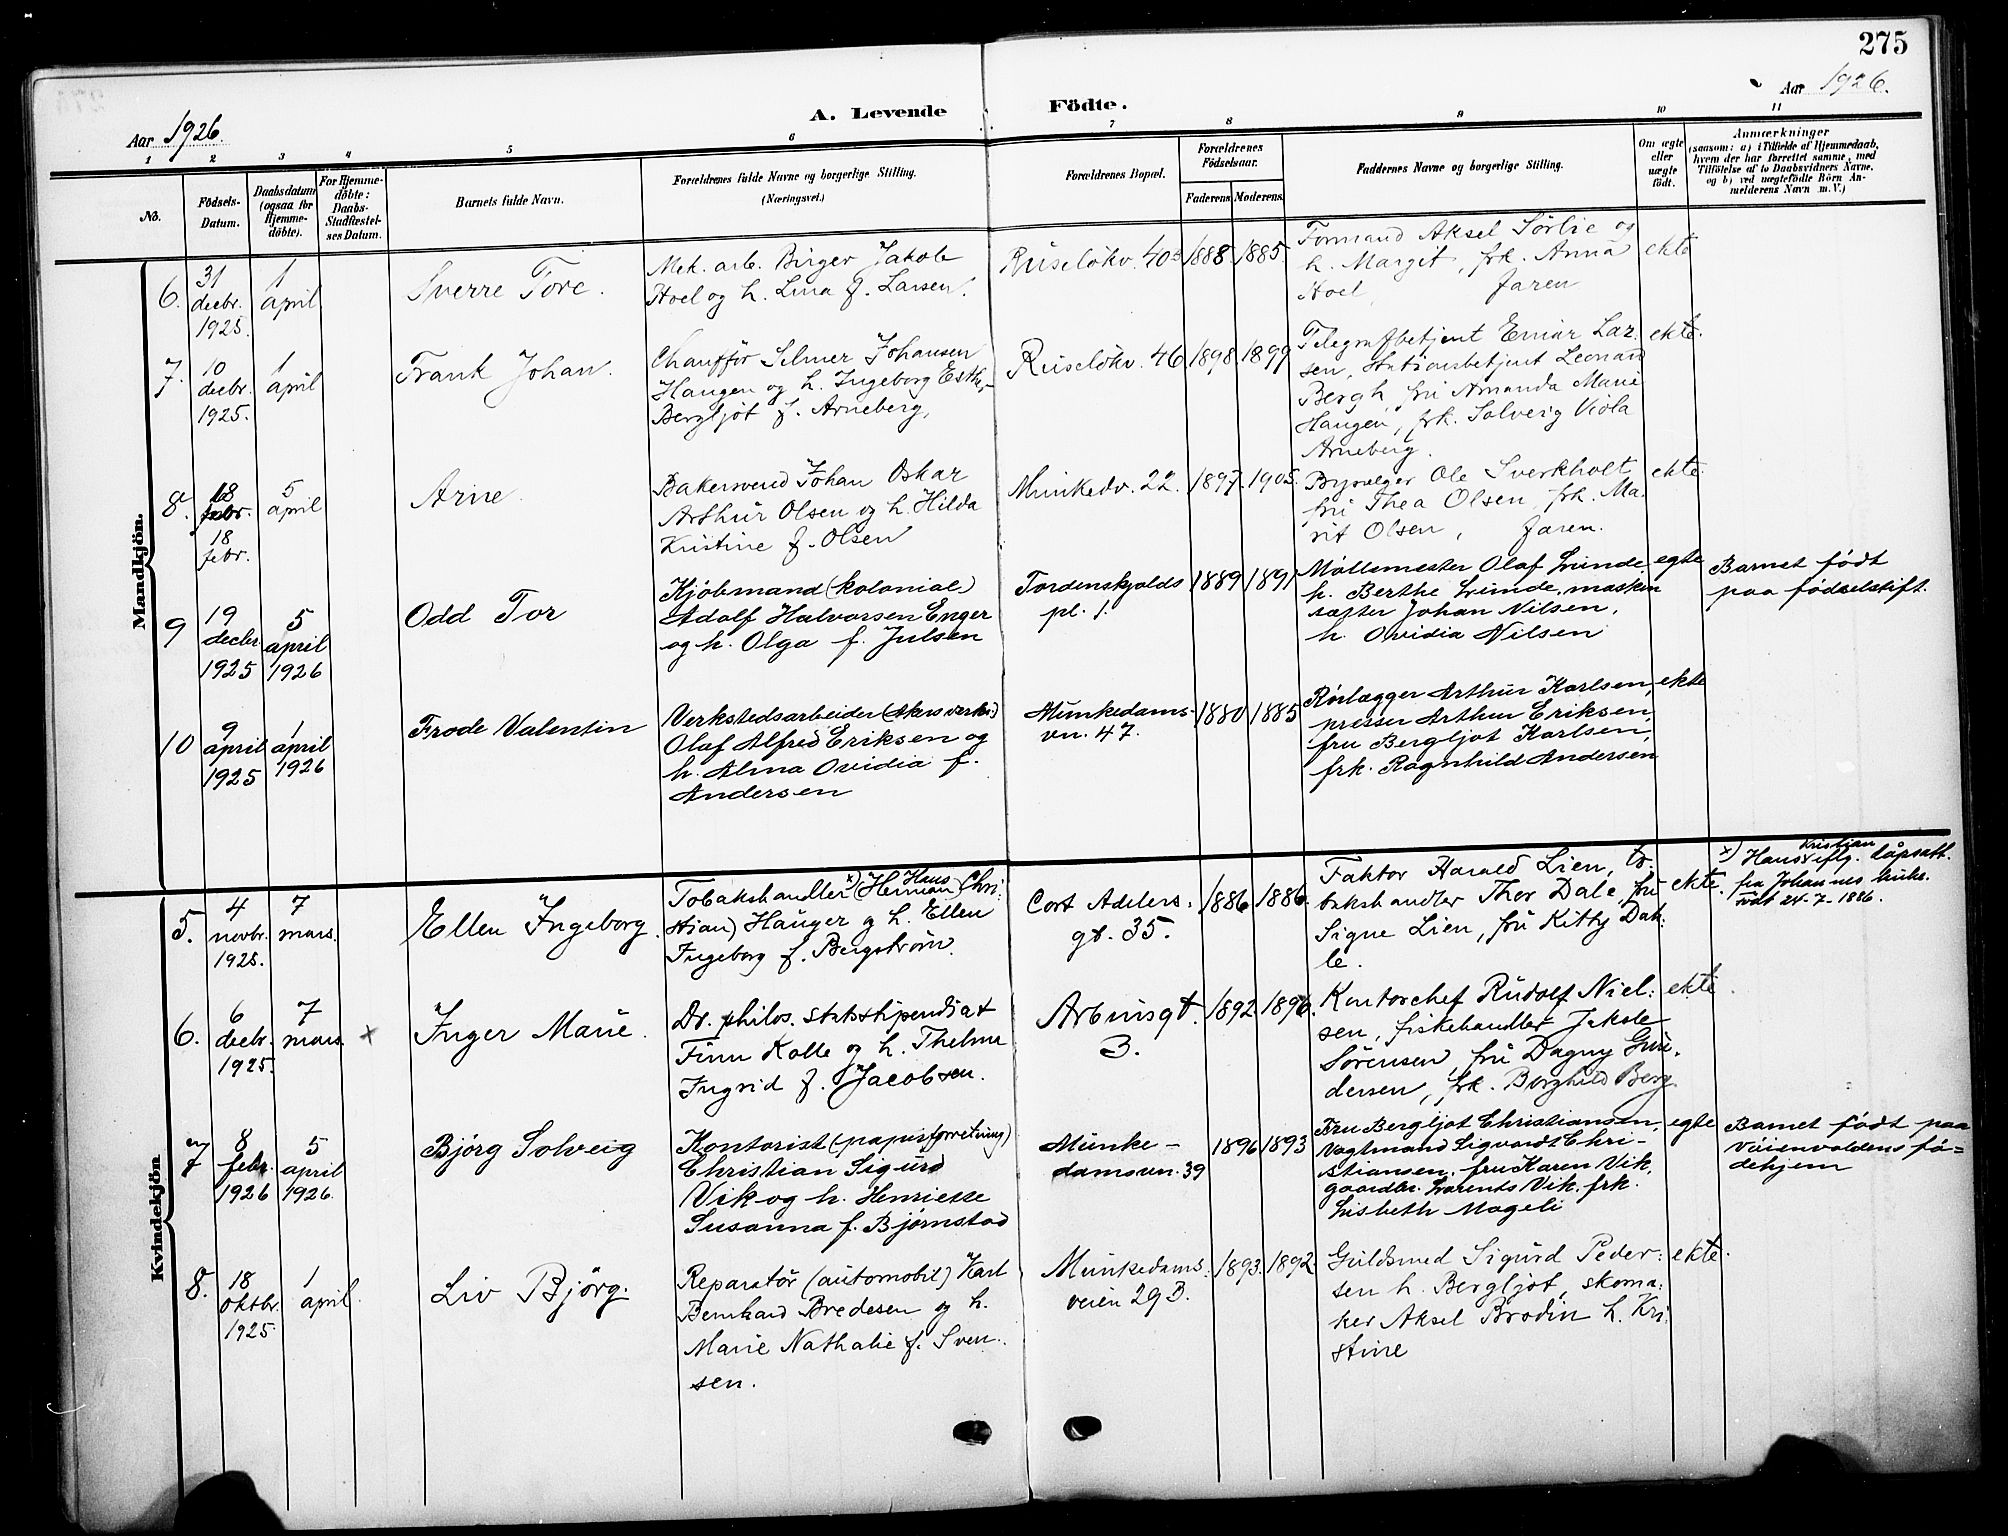 275
Aar 1926.
A. Levende Födte.
Aar 1926.
1 2 3 4 5 6 7 8 9 10 11
No.
Födsels-
Datum.
Daabsdatum
(ogsaa for
Hjemme-
döbte).
For Hjemme-
döbte:
Daabs-
Stadfæstel-
ses Datum.
Barnets fulde Navn.
Forældrenes fulde Navne og borgerlige Stilling.
(Næringsvei.)
Forældrenes Bopæl.
Forældrenes
Födselsaar.
Faderens
Moderens.
Faddernes Navne og borgerlige Stilling.
Om ægte
eller
uægte
født.
Anmærkninger
(saasom: a) i Tilfælde af Hjemmedaab,
hvem der har forrettet samme, med
Tilföielse af to Daabsvidners Navne,
og b) ved uægtefödte Börn An-
melderens Navn m. V.)
Mandkjön.
6.
31
decbr.
1925.
1
april
Sverre Tore.
Mek. arb. Birger Jakob
Hoel og h. Lina f. Larsen.
Ruseløkv. 40B
1888
1885
Formand Aksel Sørlie og
h. Margit, frk. Anna
Hoel, faren
ekte
7.
10
decbr.
1925.
1
april
Frank Johan.
Chauffør Selmer Johansen
Haugen og h. Ingeborg Esther
Bergljot f. Arneberg.
Ruseløkv. 46
1898.
1899
Telegrafbetjent Einar Lar
sen, Stationsbetjent Leonard
Bergh, fru Amanda Marie
Haugen, frk. Solveig Viola
Arneberg.
ekte.
8.
18
febr.
18
febr.
5
april
Arne.
Bakersvend Johan Oskar
Arthur Olsen og h. Hilda
Kristine f. Olsen
Munkedv. 22.
1897.
1905.
Bryselger Ole Sverkholt
fru Thea Olsen, frk. Ma-
rit Olsen, faren.
ekte
9
19
decbr
1925
5
april
1926
Odd Tor
Kjøbmand (kolonial)
Adolf Halvorsen Enger
og h. Olga f. Julsen
Tordenskjolds
pl. 1.
1889
1891
Møllemester Olaf Lunde,
h. Berthe Lunde, maskin
sætter Johan Nilsen,
h. Ovidia Nilsen
egte
Barnet født
paa fødselstift.
10
9
april
1925
1
april
1926
Frode Valentin
Verkstedsarbeider (Akers verks.)
Olaf Alfred Eriksen og
h. Alma Ovidia f.
Andersen
Munkedams-
vn. 47.
1880
1885
Rørlægger Arthur Karlsen,
presser Arthur Eriksen,
fru Bergljot Karlsen,
frk. Ragnhild Andersen
ekte
Kvindekjön
5.
4
novbr.
1925.
7
mars.
Ellen Ingeborg.
Tobakshandler x) (Herman Hans Chri-
stian) Hauger og h. Ellen
Ingeborg f. Bergstrøm.
Cort Adelers.
gt. 35.
1886
1886.
Faktor Harald Lien, to-
bakshandler Thor Dale, fru
Signe Lien, fru Kitty Da-
le.
ekte.
x) Hans Kristian iflg. dåpsatt.
fra Johannes kirke.
født 24-7-1886.
6.
6
decbr.
1925.
7
mars.
x
Inger Marie.
Dr. philos. statsstipendiat
Finn Kolle og h. Thelma
Ingrid f. Jacobsen.
Arbinsgt.
3.
1892
1896.
Kontorchef Rudolf Niel-
sen, fiskehandler Jakob
Sørensen, fru Dagny Gun-
dersen, frk. Borghild Berg
ekte.
7
8
febr.
1926
5
april
1926.
Bjørg Solveig
Kontorist (papirforretning)
Christian Sigurd
Vik og h. Henriette
Susanna f. Bjørnstad
Munke-
damsvn. 39
1896
1893
Fru Bergljot Christiansen,
vagtmand Sigvardt Chri-
stiansen, fru Karen Vik,
gaardbr. Lorents Vik, frk.
Lisbeth Mageli
egte
Barnet født paa
Veienvoldens fø-
dehjem
8.
18
oktbr.
1925
1
april.
Liv Bjørg.
Reparatør (automobil) Karl
Bernhard Bredesen og h.
Marie Nathalie f. Sven-
sen.
Munkedams-
veien 29B.
1893.
1892
Guldsmed Sigurd Peder-
sen h. Bergljot, skoma-
ker Aksel Brodin h. Kri-
stine
ekte.